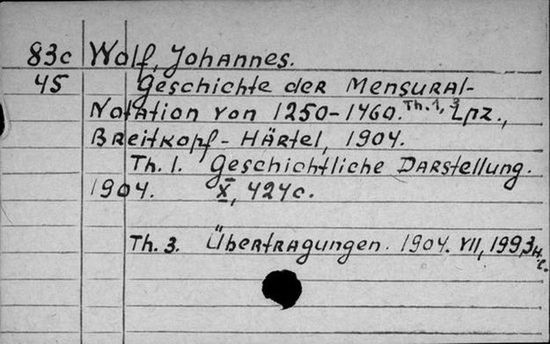 83c Wolf, Johannes.
45 Geschichte der Mensural-
Notation von 1250-1460. Th. 1, 3 Lpz.,
Breitkopf-Härtel, 1904.
Th. 1. Geschichtliche Darstellung.
1904. X, 424 c.
Th. 3. Übertragungen. 1904. VII, 199, 3 н.
c.